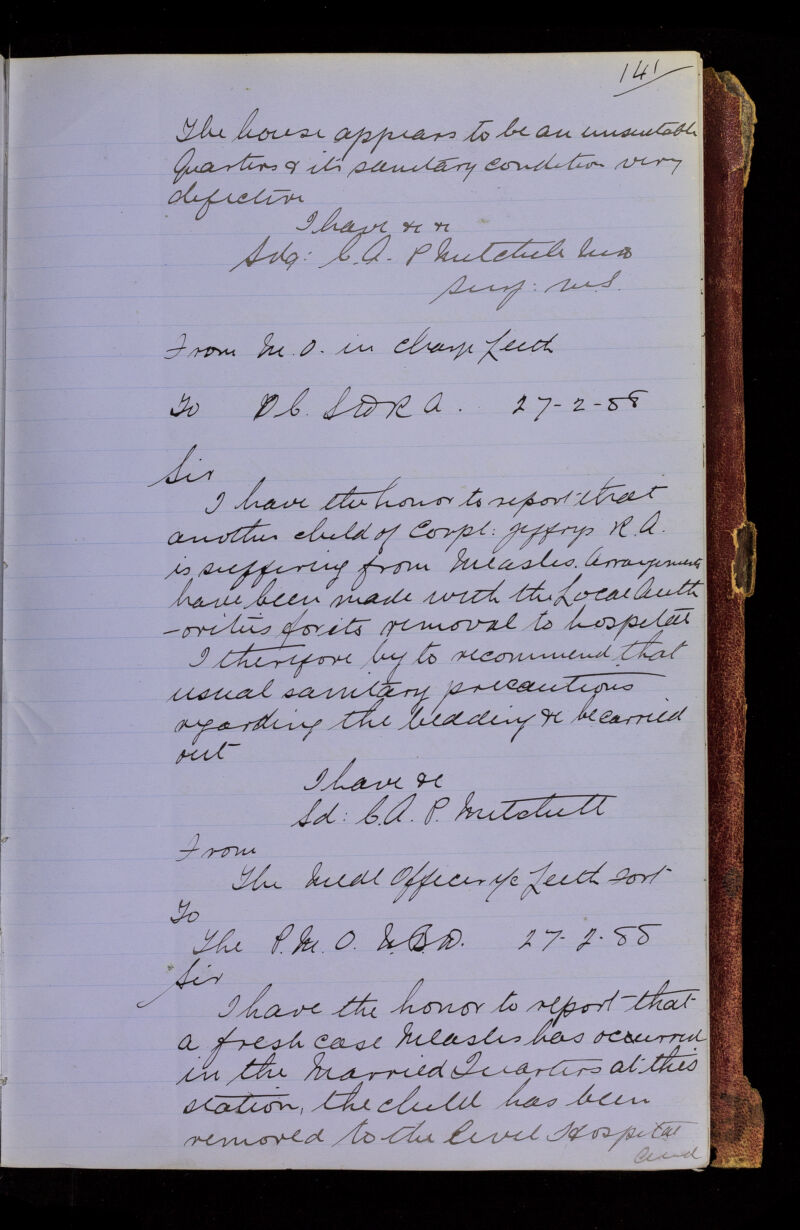 141
The house appears to be an unsuitable
Quarters & its sanitary condition very
defective
I have &c &c
Sdg: C.A. P Mitchell MB
Surg: M.S.
From M.O. in charge Leith
To D C. S D R A. 27-2-88
Sir
I have the honor to report that
another child of Corpl: Jeffrys R.A.
is suffering from Measles. Arrangements
have been made with the Local Auth
-orities for its removal to hospital
I therefore beg to recommend that
usual sanitary precautions
regarding the bedding &c be carried
out
I have &c
Sd: C.A. P. Mitchell
From
The Medl Officer i/c Leith Fort
To
The P.M.O. N.B.D. 27-2-88
Sir
I have the honor to report that
a fresh case Measles has occurred
in the Married Quarters at this
station, the child has been
removed to the Civil Hospital
and